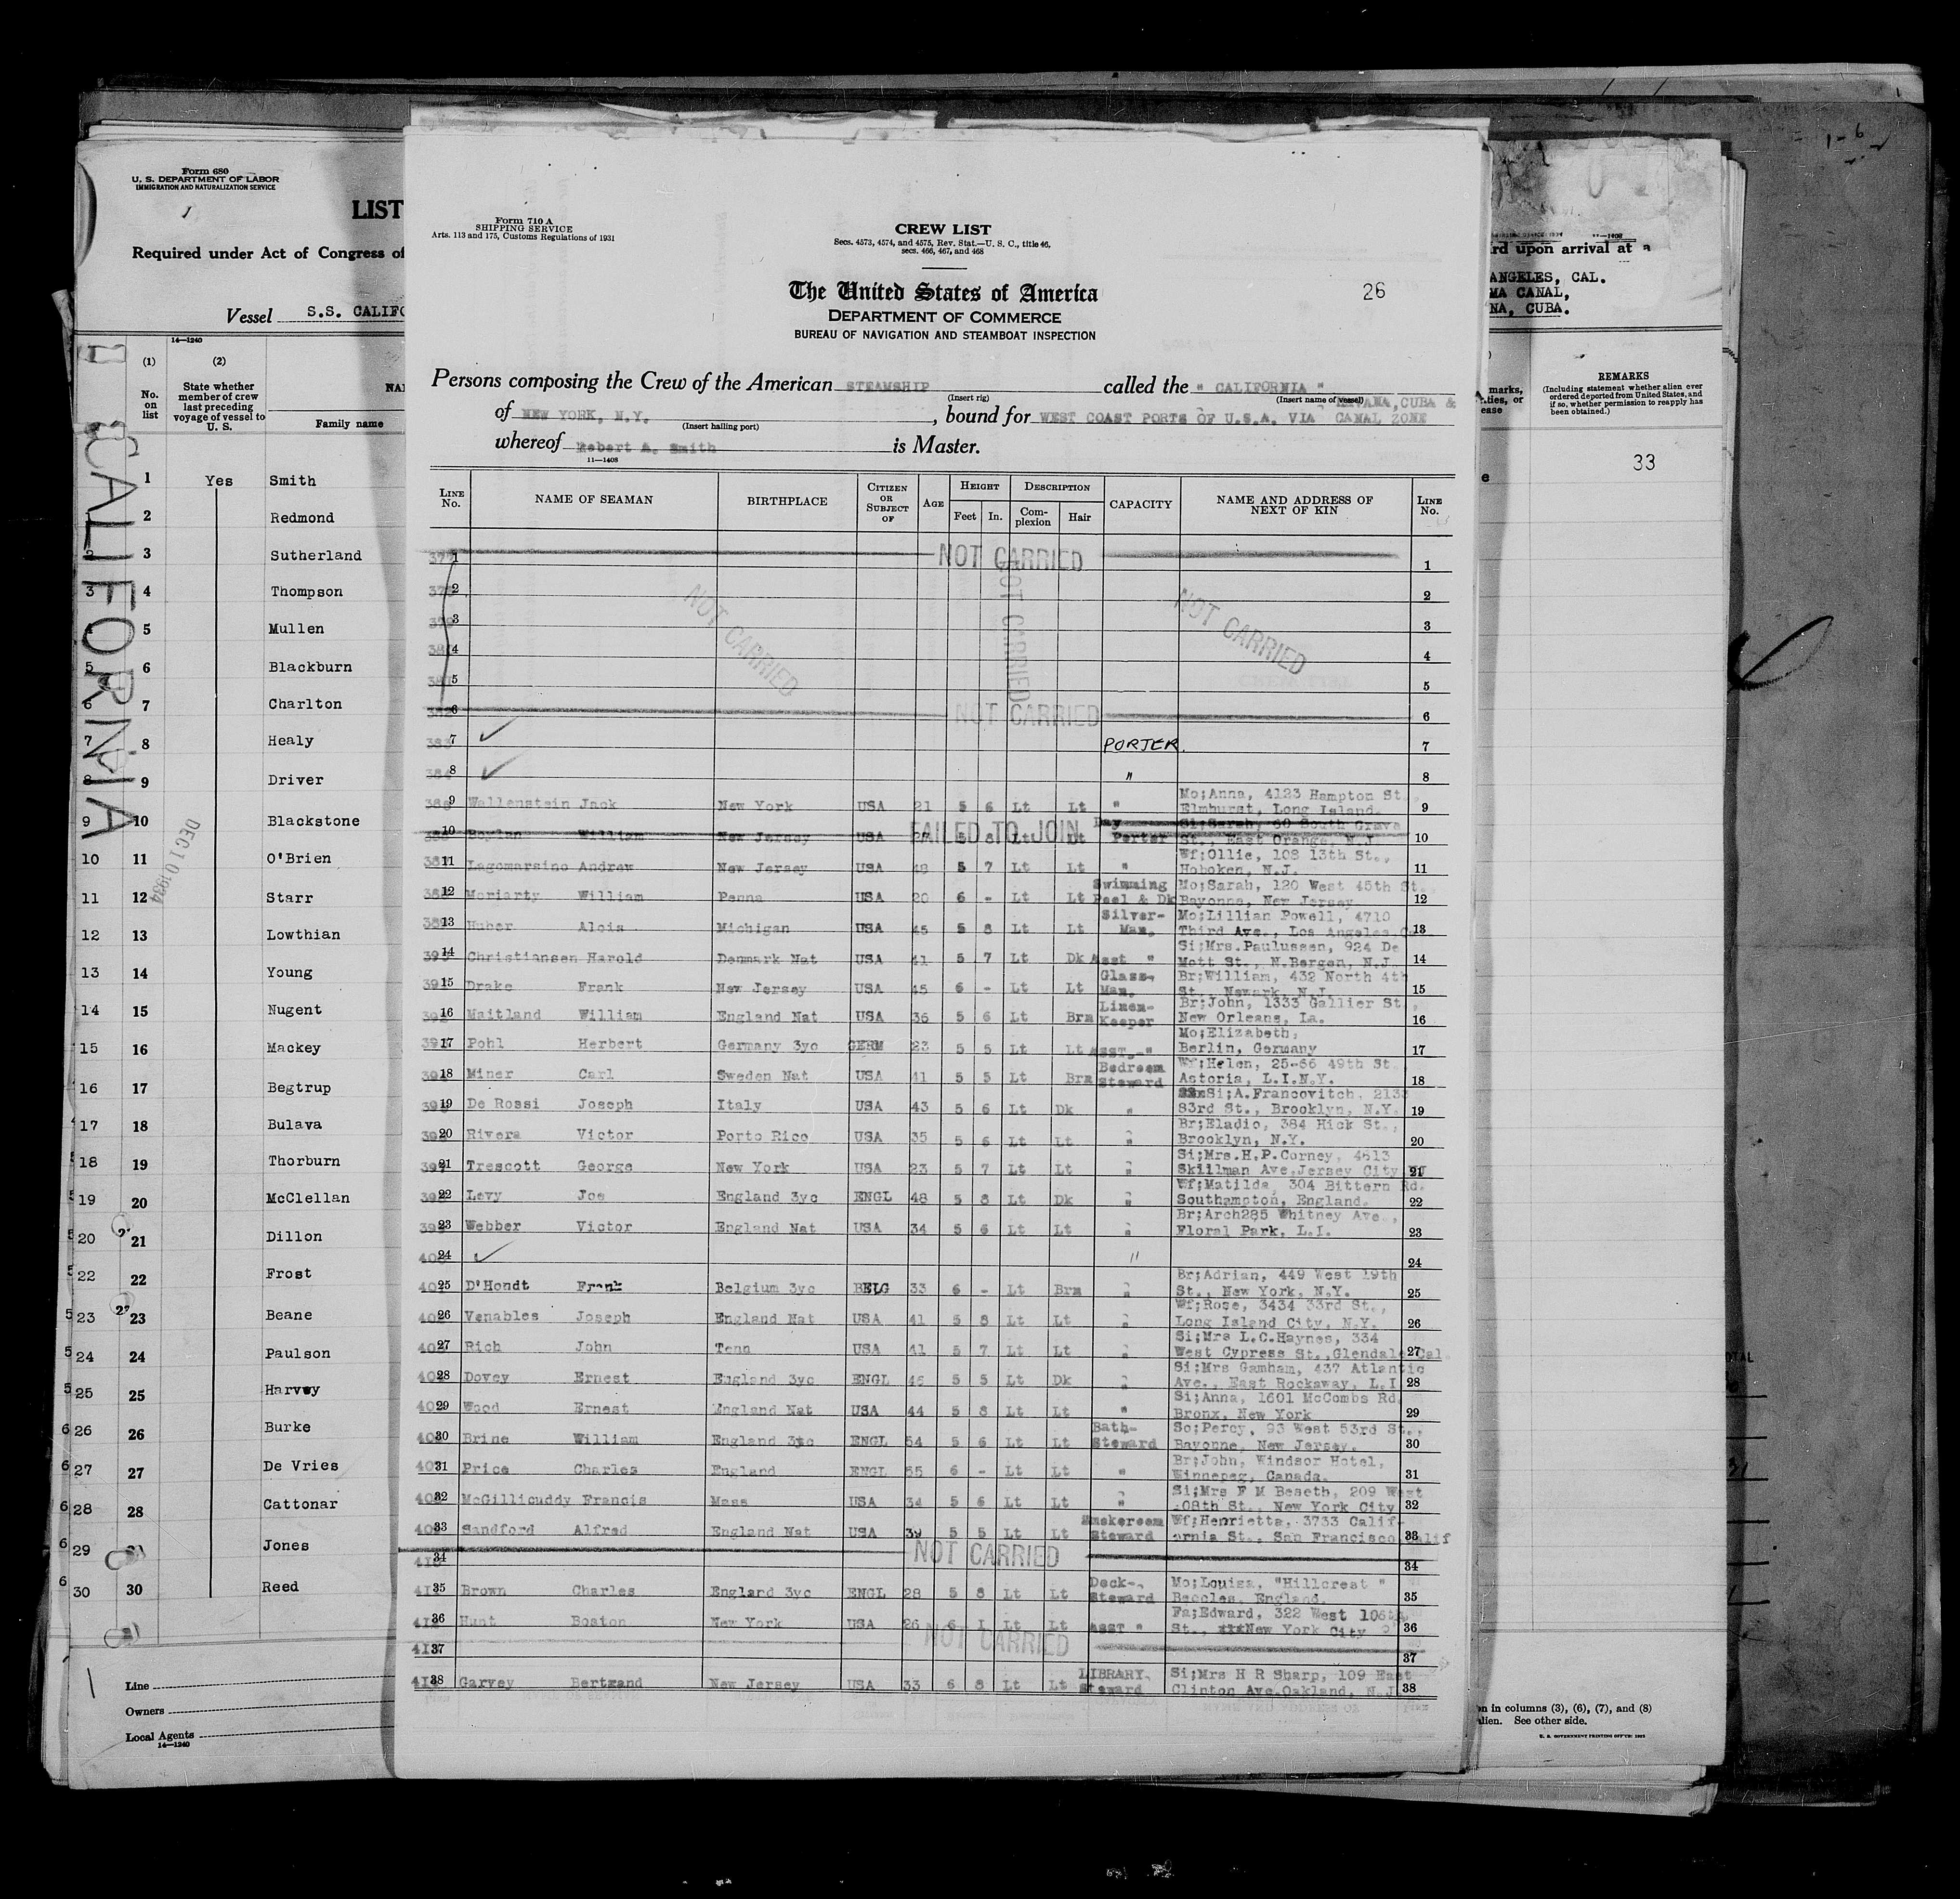 Form 680
U. S. DEPARTMENT OF LABOR
IMMIGRATION AND NATURALIZATION SERVICE
LIST
Required under Act of Congress of
Vessel S.S. CALIFO
14—1240
(1) (2)
No. on list
State whether member of crew last preceding voyage of vessel to U. S.
NA
Family name
CALIFORNIA
DEC 10 1934
1 Yes Smith
1 2 Redmond
2 3 Sutherland
3 4 Thompson
4 5 Mullen
5 6 Blackburn
6 7 Charlton
7 8 Healy
8 9 Driver
9 10 Blackstone
10 11 O'Brien
11 12 Starr
12 13 Lowthian
13 14 Young
14 15 Nugent
15 16 Mackey
16 17 Begtrup
17 18 Bulava
18 19 Thorburn
19 20 McClellan
20 21 Dillon
22 22 Frost
23 23 Beane
24 24 Paulson
25 25 Harvey
26 26 Burke
27 27 De Vries
28 28 Cattonar
29 Jones
30 30 Reed
Line
Owners
Local Agents
14—1240
Form 710 A
SHIPPING SERVICE
Arts. 113 and 175, Customs Regulations of 1931
CREW LIST
Secs. 4573, 4574, and 4575, Rev. Stat.—U. S. C., title 46,
secs. 466, 467, and 468
The United States of America
DEPARTMENT OF COMMERCE
BUREAU OF NAVIGATION AND STEAMBOAT INSPECTION
26
Persons composing the Crew of the American STEAMSHIP called the " CALIFORNIA "
(Insert rig) (Insert name of vessel) HAVANA, CUBA &
of NEW YORK, N.Y. , bound for WEST COAST PORTS OF U.S.A. VIA CANAL ZONE
(Insert hailing port)
whereof Robert A. Smith is Master.
11—1408
LINE No. NAME OF SEAMAN BIRTHPLACE CITIZEN OR SUBJECT OF AGE HEIGHT Feet In. DESCRIPTION Complexion Hair CAPACITY NAME AND ADDRESS OF NEXT OF KIN LINE No.
1 NOT CARRIED 1
2 2
NOT CARRIED NOT CARRIED NOT CARRIED
3 3
4 4
5 5
6 NOT CARRIED 6
7 PORTER. 7
8 " 8
9 Wallenstein Jack New York USA 21 5 6 Lt Lt " Mo;Anna, 4123 Hampton St., Elmhurst, Long Island. 9
10 William New Jersey USA 5 8 Lt Lt Day Porter Si;Sarah, 60 South Grove St., East Orange, N.J. 10
FAILED TO JOIN
11 Lagomarsino Andrew New Jersey USA 48 5 7 Lt Lt " Wf;Ollie, 108 13th St., Hoboken, N.J. 11
12 Moriarty William Penna USA 20 6 - Lt Lt Swimming Pool & Dk Mo;Sarah, 120 West 45th St., Bayonne, New Jersey 12
13 Huber Alois Michigan USA 45 5 8 Lt Lt Silver-Man. Mo;Lillian Powell, 4710 Third Ave., Los Angeles 13
14 Christiansen Harold Denmark Nat USA 41 5 7 Lt Dk Asst " Si;Mrs.Paulussen, 924 De Mott St., N.Bergen, N.J. 14
15 Drake Frank New Jersey USA 45 6 - Lt Lt Glass-Man. Br;William, 432 North 4th St., Newark, N.J. 15
16 Maitland William England Nat USA 36 5 6 Lt Brn Linen-Keeper Br;John, 1333 Gallier St., New Orleans, La. 16
17 Pohl Herbert Germany 3yc GERM 23 5 5 Lt Lt ASST. " Mo;Elizabeth, Berlin, Germany 17
18 Miner Carl Sweden Nat USA 41 5 5 Lt Brn Bedroom Steward Wf;Helen, 25-66 49th St. Astoria, L.I.N.Y. 18
19 De Rossi Joseph Italy USA 43 5 6 Lt Dk " Si;A.Francovitch, 213 83rd St., Brooklyn, N.Y. 19
20 Rivera Victor Porto Rico USA 35 5 6 Lt Lt " Br;Eladio, 384 Hick St., Brooklyn, N.Y. 20
21 Trescott George New York USA 23 5 7 Lt Lt " Si;Mrs.H.P.Corney, 4613 Skillman Ave,Jersey City 21
22 Levy Joe England 3yc ENGL 48 5 8 Lt Dk " Wf;Matilda, 304 Bittern Rd. Southampton, England. 22
23 Webber Victor England Nat USA 34 5 6 Lt Lt " Br;Arch285 Whitney Ave., Floral Park, L.I. 23
24 " 24
25 D'Hondt Frank Belgium 3yc BELG 33 6 - Lt Brn " Br;Adrian, 449 West 19th St., New York, N.Y. 25
26 Venables Joseph England Nat USA 41 5 8 Lt Lt " Wf;Rose, 3434 33rd St., Long Island City, N.Y. 26
27 Rich John Tenn USA 41 5 7 Lt Lt " Si;Mrs L.C.Haynes, 334 West Cypress St.,Glendale Cal. 27
28 Dovey Ernest England 3yc ENGL 46 5 5 Lt Dk " Si;Mrs Gamham, 437 Atlantic Ave., East Rockaway, L.I 28
29 Wood Ernest England Nat USA 44 5 8 Lt Lt " Si;Anna, 1601 McCombs Rd. Bronx, New York 29
30 Brine William England 3yc ENGL 54 5 6 Lt Lt Bath-Steward So;Percy, 93 West 53rd St., Bayonne, New Jersey. 30
31 Price Charles England ENGL 55 6 - Lt Lt " Br;John, Windsor Hotel, Winnepeg, Canada. 31
32 McGillicuddy Francis Mass USA 34 5 6 Lt Lt " Si;Mrs F M Beseth, 209 West 108th St., New York City 32
33 Sandford Alfred England Nat USA 39 5 5 Lt Lt Smokeroom Steward Wf;Henrietta, 3733 California St., San Francisco Calif 33
34 NOT CARRIED 34
35 Brown Charles England 3yc ENGL 28 5 8 Lt Lt Deck-Steward Mo;Louisa, "Hillcrest " Beccles, England. 35
36 Hunt Boaton New York USA 26 6 1 Lt Lt ASST " Fa;Edward, 322 West 106th St., New York City 36
37 NOT CARRIED 37
38 Garvey Bertrand New Jersey USA 33 6 8 Lt Lt LIBRARY Steward Si;Mrs H R Sharp, 109 East Clinton Ave.Oakland, N.J. 38
rd upon arrival at
ANGELES, CAL.
MA CANAL,
NA, CUBA.
REMARKS
(Including statement whether alien ever ordered deported from United States, and if so, whether permission to reapply has been obtained.)
33
n in columns (3), (6), (7), and (8)
alien. See other side.
U. S. GOVERNMENT PRINTING OFFICE